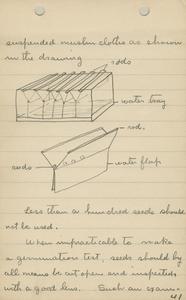 suspended muslin cloths as shown
in the drawing
rods
water tray
rod.
seeds
water flap
Less than a hundred seeds should
not be used.
When impracticable to make
a germination test, seeds should by
all means be cut open and inspected
with a good lens. Such an exam-
41